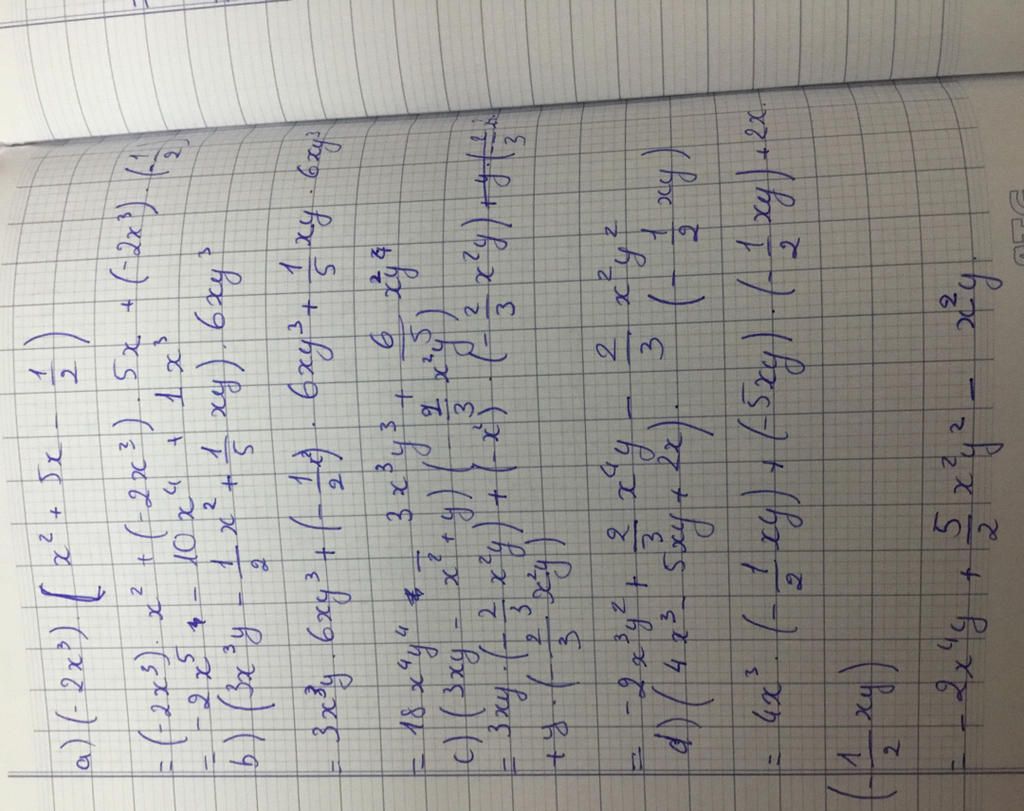 a) (-2x³) (x² + 5x - 1/2)
= (-2x³). x² + (-2x³). 5x + (-2x³). (-1/2)
= -2x⁵ - 10x⁴ + 1x³
b) (3x³y - 1/2 x² + 1/5 xy). 6xy³
= 3x³y. 6xy³ + (-1/2 x²). 6xy³ + 1/5 xy. 6xy³
= 18x⁴y⁴ - 3x³y³ + 6/5 x²y⁴
c) (3xy - x² + y) (-2/3 x²y)
= 3xy. (-2/3 x²y) + (-x²). (-2/3 x²y) + y.
+ y. (-2/3 x²y)
= -2x³y² + 2/3 x⁴y - 2/3 x²y²
d) (4x³ - 5xy + 2x). (-1/2 xy)
= 4x³. (-1/2 xy) + (-5xy). (-1/2 xy) + 2x.
(-1/2 xy)
= -2x⁴y + 5/2 x²y² - x²y.